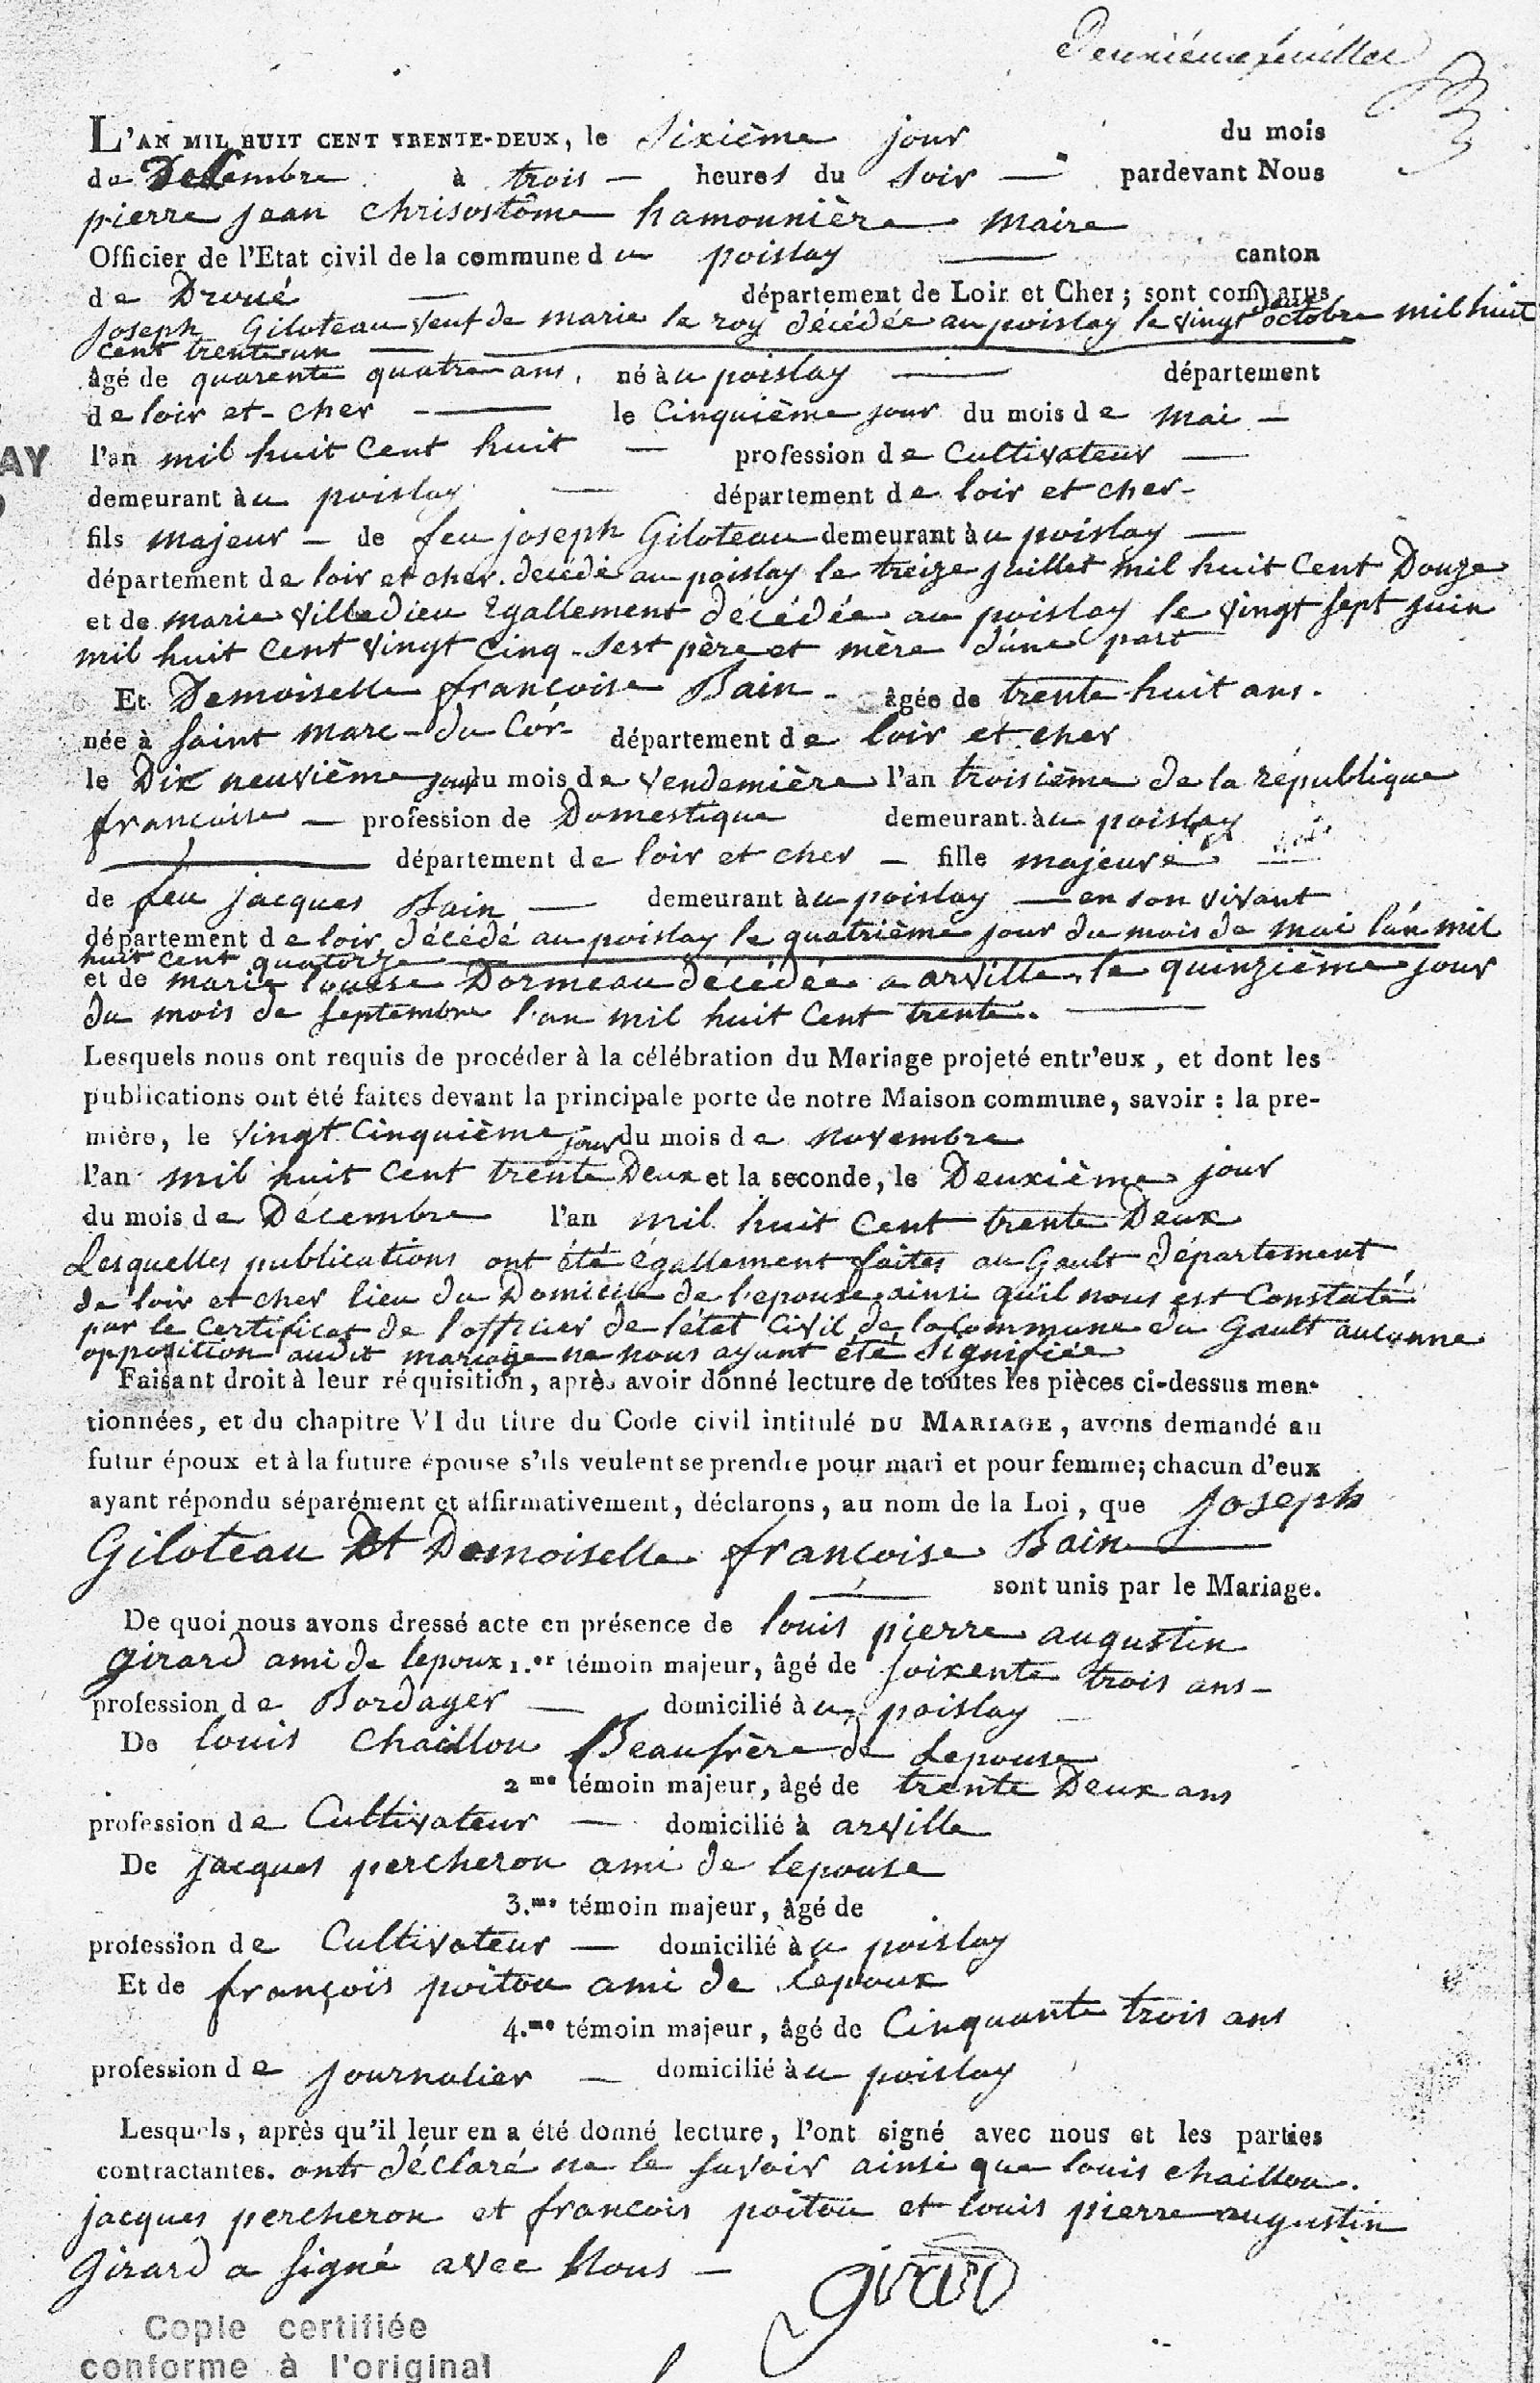 Deuxième feuillet
L'AN MIL HUIT CENT TRENTE-DEUX, le Sixième jour du mois
de Decembre à trois — heures du Soir — pardevant Nous
pierre jean chrisostôme hamonnière maire
Officier de l'Etat civil de la commune du poislay — canton
de Droué — département de Loir et Cher ; sont comparus
joseph Giloteau veuf de marie le roy décédée au poislay le vingt deux octobre mil huit
cent trente un —
âgé de quarente quatre ans, né à u poislay — département
de loir et-cher — le Cinquième jour du mois de mai —
l'an mil huit Cent huit — profession de Cultivateur —
demeurant à u poislay — département de loir et cher-
fils majeur — de feu joseph Giloteau demeurant à u poislay —
département de loir et cher. decédé au poislay le treize juillet mil huit Cent Douze
et de marie villedieu Egallement décédée au poislay le vingt sept juin
mil huit Cent vingt Cinq - sest père et mère d'une part
Et Demoiselle francoise Bain - âgée de trente huit ans.
née à saint marc-du Cor- département de loir et cher
le Dix neuvième jour du mois de vendemière l'an troisième de la république
francaise — profession de Domestique demeurant à u poislay
— département de loir et cher — fille majeure
de feu jacques Bain — demeurant à u poislay — en son vivant
département de loir décédé au poislay le quatrième jour du mois de mai l'an mil
huit cent quatorze
et de marie louise Dormeau décédée a arville, le quinzième jour
du mois de septembre l'an mil huit Cent trente. —
Lesquels nous ont requis de procéder à la célébration du Mariage projeté entr'eux, et dont les
publications ont été faites devant la principale porte de notre Maison commune, savoir : la pre-
mière, le vingt Cinquième jour du mois de novembre
l'an mil huit Cent trente Deux et la seconde, le Deuxième jour
du mois de Décembre l'an mil huit Cent trente Deux
Lesquelles publications ont été égallement faites au Gault département
de loir et cher lieu du Domicile de l'epouse, ainsi qu'il nous est Constaté
par le Certificat de l'officier de l'état Civil de la Commune du Gault aucunne
opposition audit mariage ne nous ayant été signifiée
Faisant droit à leur réquisition, après avoir donné lecture de toutes les pièces ci-dessus men-
tionnées, et du chapitre VI du titre du Code civil intitulé DU MARIAGE, avons demandé au
futur époux et à la future épouse s'ils veulent se prendre pour mari et pour femme; chacun d'eux
ayant répondu séparément et affirmativement, déclarons, au nom de la Loi, que joseph
Giloteau Et Demoiselle françoise Bain —
— sont unis par le Mariage.
De quoi nous avons dressé acte en présence de louis pierre augustin
girard ami de lepoux 1.er témoin majeur, âgé de soixente trois ans —
profession de Bordager — domicilié à u poislay —
De louis chaillou Beaufrère de Lepouse
2me témoin majeur, âgé de trente Deux ans
profession de Cultivateur — domicilié à arville
De jacques percheron ami de lepouse
3.me témoin majeur, âgé de
profession de Cultivateur — domicilié à u poislay
Et de françois poitou ami de lepoux
4.me témoin majeur, âgé de Cinquante trois ans
profession de journalier — domicilié à u poislay
Lesquels, après qu'il leur en a été donné lecture, l'ont signé avec nous et les parties
contractantes. ont déclaré ne le savoir ainsi que louis chaillou.
jacques percheron et francois poitou et louis pierre augustin
girard a signé avec Nous —
girard
Copie certifiée
conforme à l'original
AY